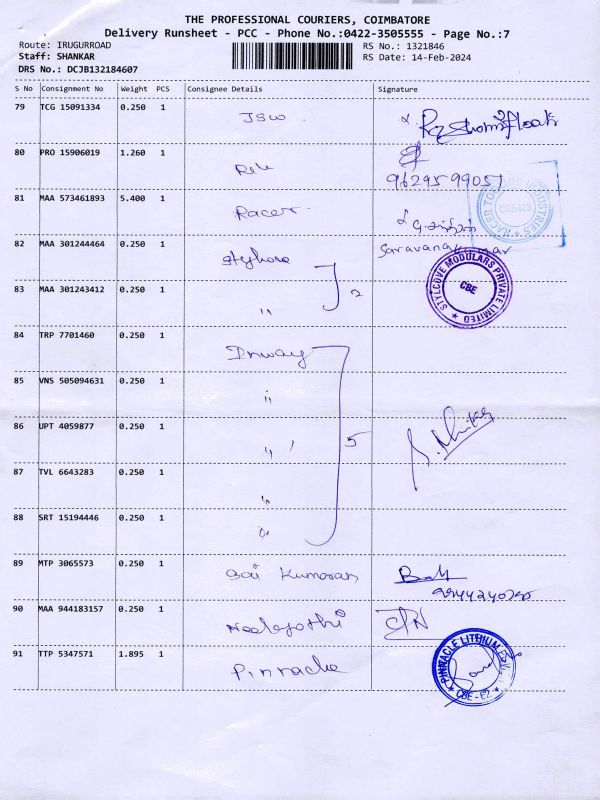 THE PROFESSIONAL COURIERS, COIMBATORE
Delivery Runsheet - PCC - Phone No.:0422-3505555 - Page No.:7
Route: IRUGURROAD RS No.: 1321846
Staff: SHANKAR RS Date: 14-Feb-2024
DRS No.: DCJB132184607
S No Consignment No Weight PCS Consignee Details Signature
79 TCG 15091334 0.250 1 JSW
80 PRO 15906019 1.260 1
9629599051
81 MAA 573461893 5.400 1 Racer
82 MAA 301244464 0.250 1
STYLCOVE MODULARS PRIVATE LIMITED
CBE
83 MAA 301243412 0.250 1 " 2
84 TRP 7701460 0.250 1
85 VNS 505094631 0.250 1 "
86 UPT 4059877 0.250 1 " 5
87 TVL 6643283 0.250 1 "
88 SRT 15194446 0.250 1 "
89 MTP 3065573 0.250 1 Sai Kumaran
90 MAA 944183157 0.250 1
91 TTP 5347571 1.895 1 Pinnacle
PINNACLE LITHIUM